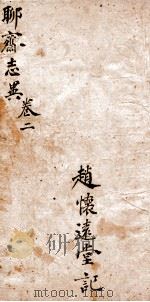 聊齋志異卷二
趙懷遠堂記